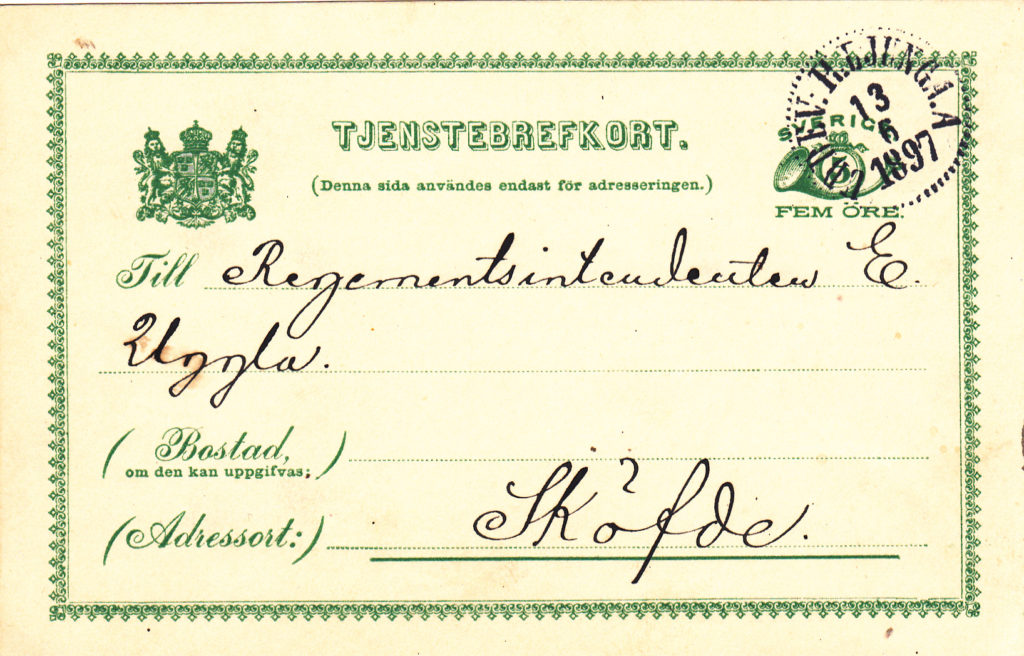 TJENSTEBREFKORT.
(Denna sida användes endast för adresseringen.)
SVERIGE
FEM ÖRE.
13
6
1897
Till Regementsintendenten E.
Uggla.
(Bostad,
om den kan uppgifvas;)
(Adressort:) Sköfde.